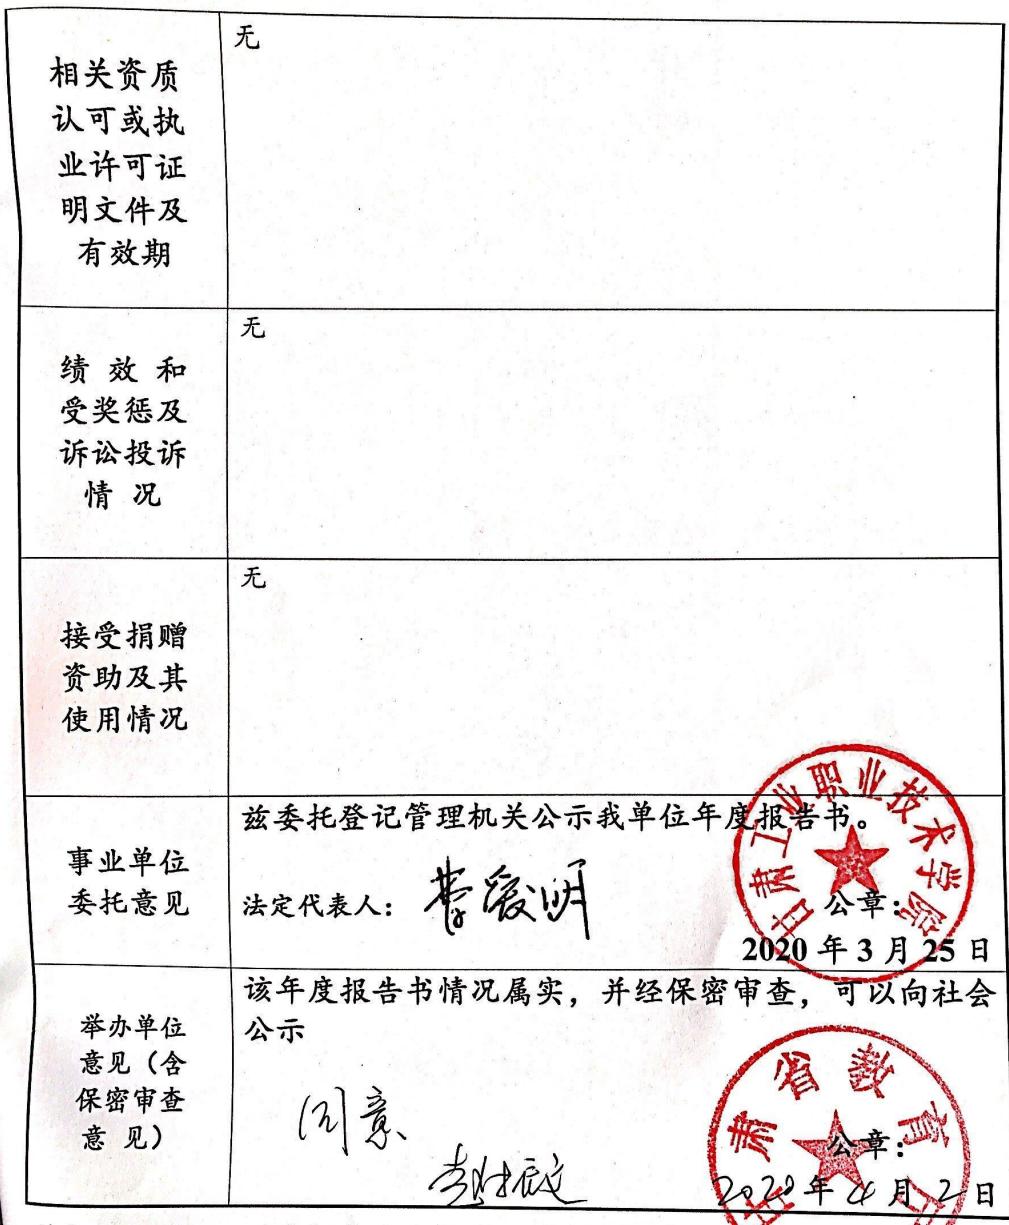 相关资质
认可或执
业许可证
明文件及
有效期
无
绩 效 和
受奖惩及
诉讼投诉
情 况
无
接受捐赠
资助及其
使用情况
无
事业单位
委托意见
兹委托登记管理机关公示我单位年度报告书。
法定代表人：
公章：
2020 年 3 月 25 日
甘肃工业职业技术学院
举办单位
意见（含
保密审查
意 见）
该年度报告书情况属实，并经保密审查，可以向社会
公示
同意
公章：
2020年4月2日
甘肃省教育厅